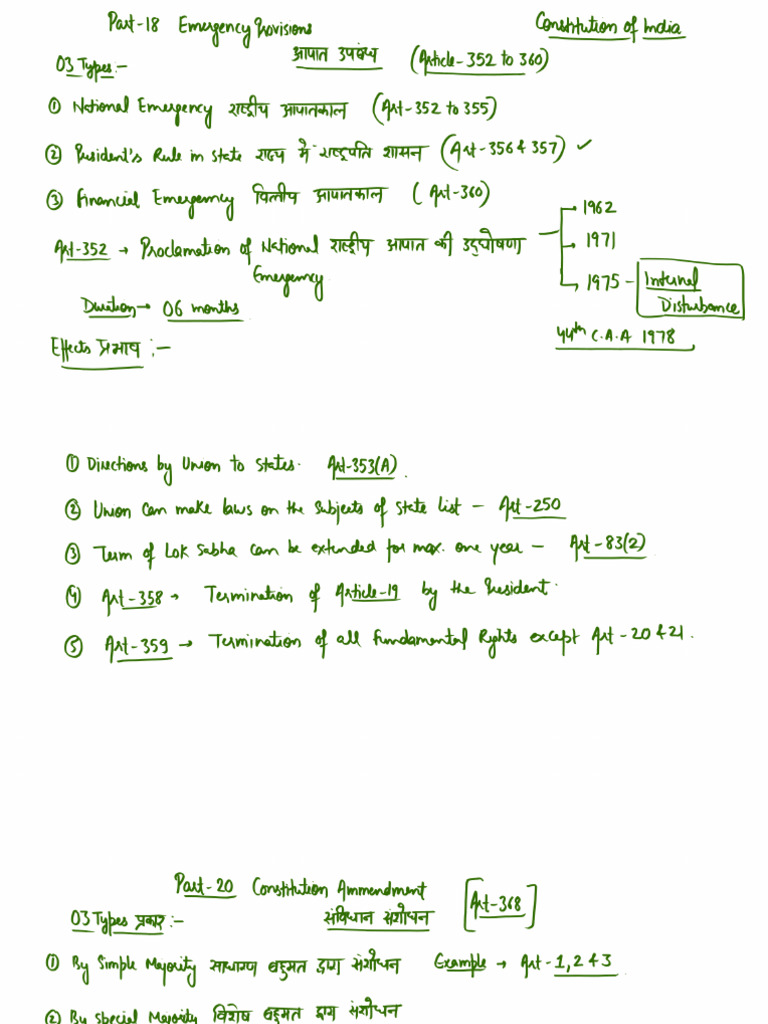 Part-18 Emergency Provisions Constitution of India
आपात उपबंध (Article-352 to 360)
03 Types:-
① National Emergency राष्ट्रीय आपातकाल (Art-352 to 355)
② President's Rule in State राज्य में राष्ट्रपति शासन (Art-356 & 357) ✓
③ Financial Emergency वित्तीय आपातकाल (Art-360)
Art-352 → Proclamation of National राष्ट्रीय आपात की उद्घोषणा
Emergency
1962
1971
1975 - Internal
Disturbance
44th C.A.A 1978
Duration → 06 months
Effects प्रभाव :-
① Directions by Union to States. Art-353(A).
② Union can make laws on the subjects of State list - Art-250
③ Term of Lok Sabha can be extended for max. one year - Art-83(2)
④ Art-358 → Termination of Article-19 by the President.
⑤ Art-359 → Termination of all Fundamental Rights except Art-20 & 21.
Part-20 Constitution Ammendment [Art-368]
संविधान संशोधन
03 Types प्रकार :-
① By Simple Majority साधारण बहुमत द्वारा संशोधन Example → Art-1, 2 & 3
② By Special Majority विशेष बहुमत द्वारा संशोधन